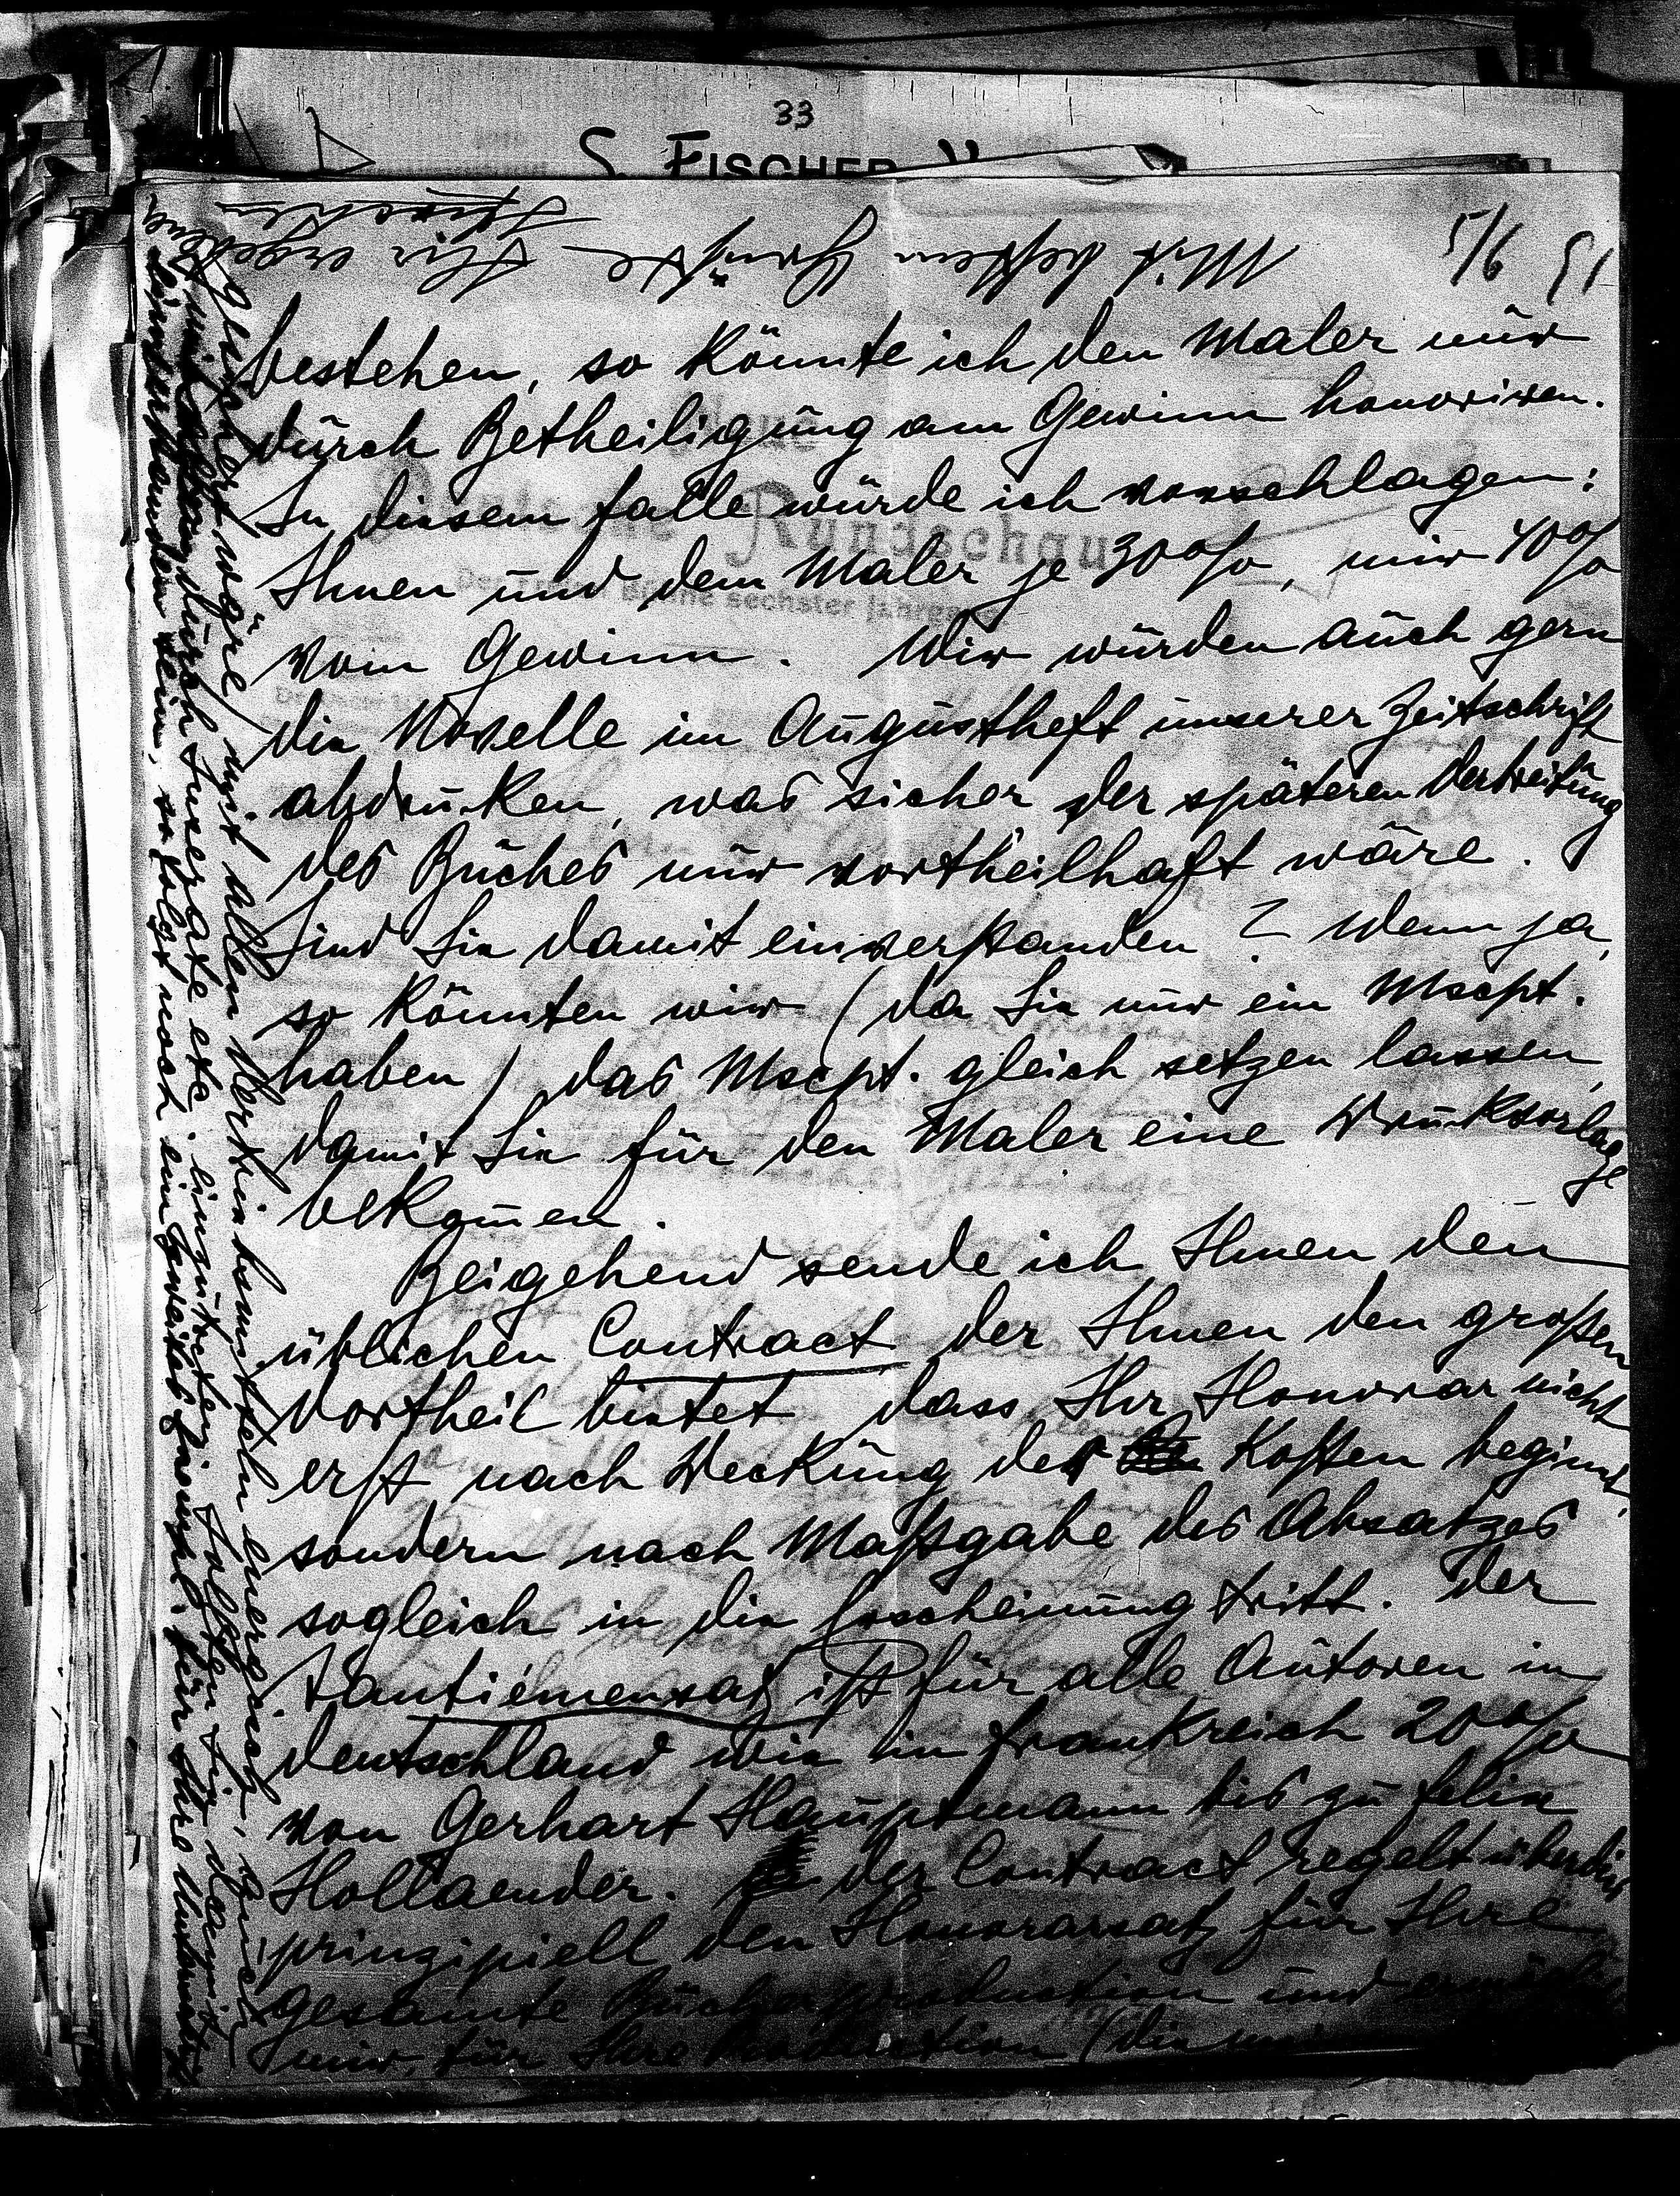 33
S. FISCHER
5/6 51
bestehen, so könnte ich den Maler nur
durch Betheiligung am Gewinn honoriren.
In diesem Falle würde ich vorschlagen:
Ihnen und dem Maler je 30%, mir 40%
vom Gewinn. Wir würden auch gern
die Novelle im Augustheft unserer Zeitschrift
abdrucken, was sicher der späteren Verbreitung
des Buches nur vortheilhaft wäre.
Sind Sie damit einverstanden? Wenn ja,
so könnten wir (da Sie nur ein Mscpt.
haben) das Mscpt. gleich setzen lassen,
damit Sie für den Maler eine Druckvorlage
bekom̄en.
Beigehend sende ich Ihnen den
üblichen Contract der Ihnen den großen
Vortheil bietet dass Ihr Honorar nicht
erst nach Deckung der Kosten beginnt,
sondern nach Maßgabe des Absatzes
sogleich in die Erscheinung tritt. Der
Tantièmensatz ist für alle Autoren in
Deutschland wie in Frankreich 20%
von Gerhart Hauptmann bis zu Felix
Hollaender. Der Contract regelt überdies
prinzipiell den Honorarsatz für Ihre
gesamte Bücherproduction und
mir, für Ihre Production (die
gesichert wäre, mit allen Vertriebsmitteln energisch, auch
durch Inserate etc. einzutreten. Sollten Sie damit
einverstanden sein, so folgt noch ein zweites Exemplar für Ihre Unterschrift
Mit besten Grüssen Ihr ergebener
SFischer
Neue
Deutsche Rundschau
Der Freien Bühne sechster Jahrgang